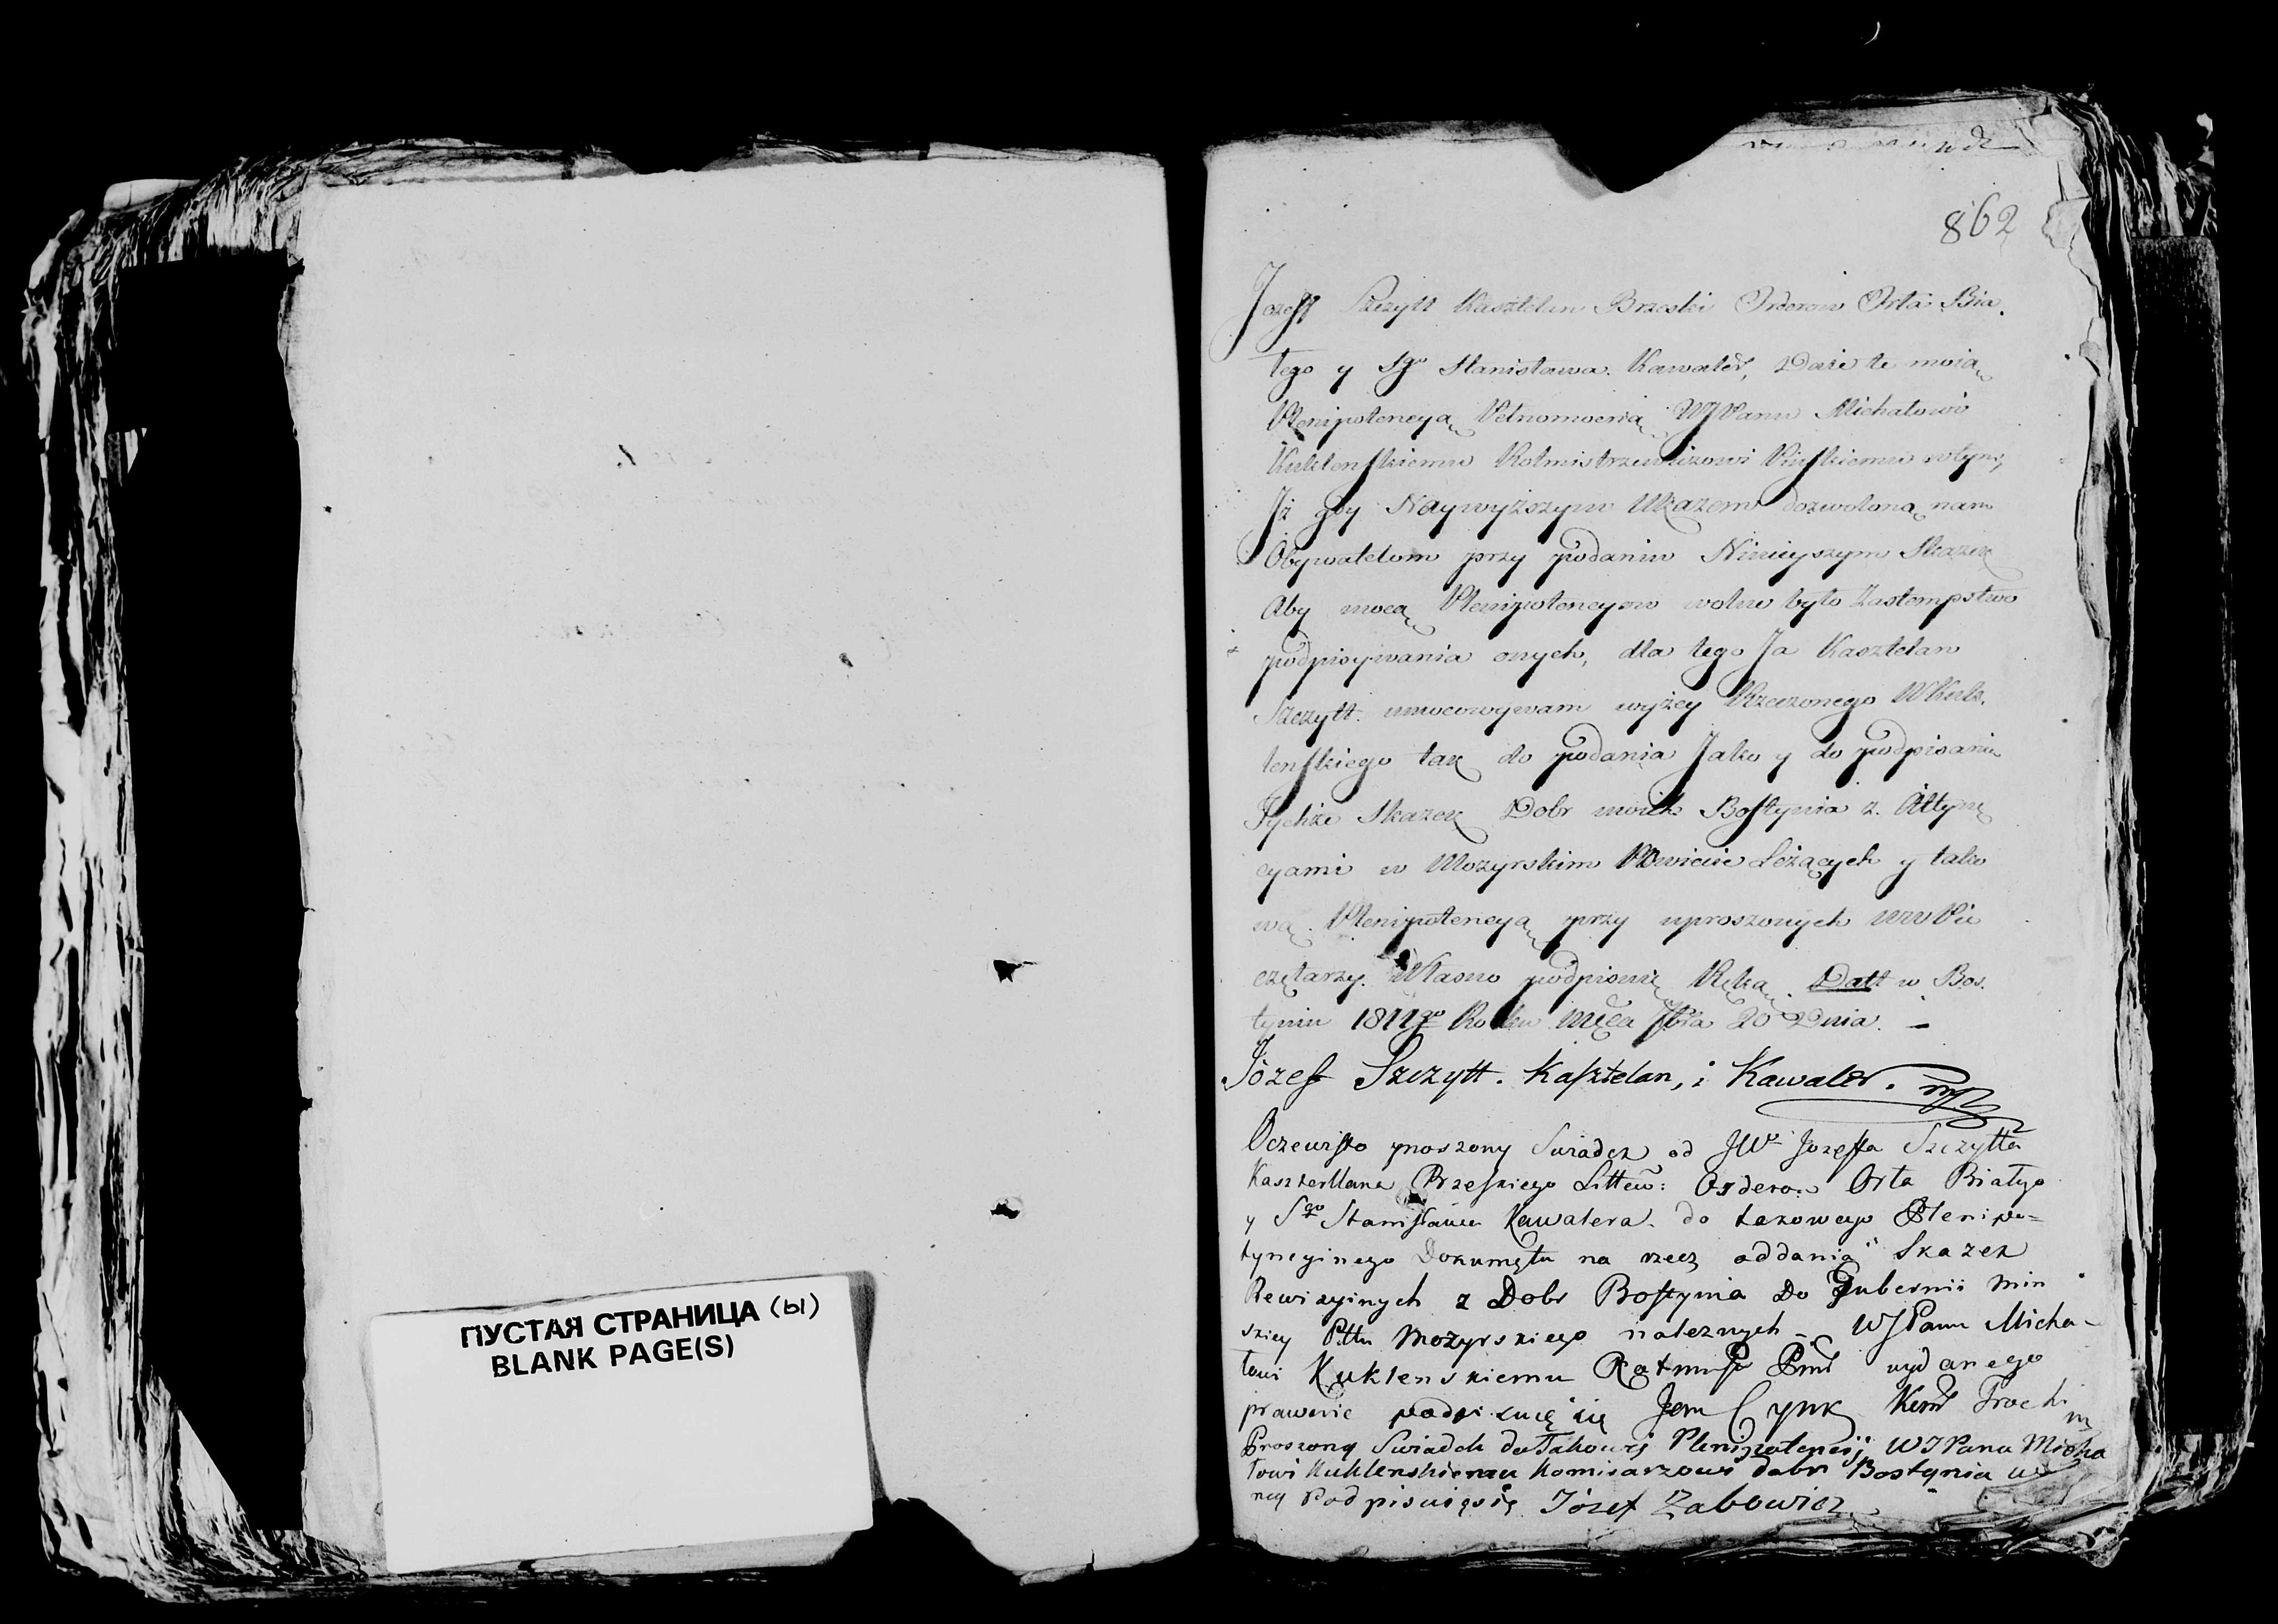 862
Jozeff Szczytt Kasztelan Brzeski Orderow Orła Bia
łego y Sgo Stanisława Kawaler, Daię tę moią
Plenipotencyą Pełnomocną WJPanu Michałowi
Kuklenskiemu Rotmistrzewiczowi Pinskiemu w tym,
Jż gdy Naywyższym Ukazem dozwolono nam
Obywatelom przy podaniu Ninieyszym Skazek
Aby mocą Plenipotencyow wolne było Zastempstwo
podpisywania onych, dla tego Ja Kasztelan
Szczytt umocowywam wyżey Rzeczonego WKuk
lenskiego tak do podania Jako y do podpisania
Tychże Skazek Dobr moich Bostynia z Attyne
cyami w Mozyrskim Powiecie Leżących y tako
wą Plenipotencyą przy uproszonych WW Pie
czętarzy Własno podpisuię Ręką. Datt w Bos
tyniu 1811go Roku Mca 20 Dnia. —
Józef Szczytt. Kasztelan, i Kawaler. mp
Oczewisto proszony Swiadek od JWo Jozeffa Szczytta
Kasztellana Brzeskiego Littew: Orderow Orła Białego
y Sgo Stanisława Kawalera do takowego Plenipo=
tyncyinego Dokumętu na rzecz oddania Skazek
Rewizyinych z Dobr Bostynia Do Gubernii Min
skiey Pttu Mozyrskiego należnych — WJPanu Micha-
łowi Kuklenskiemu wydanego
prawnie podpisuię się Jan Cynk
Proszony Swiadek do Takowey Plenipotencij WJPanu Micha
łowi Kuklenskiemu Komisarzowi dobr Bostynia
ney Podpisuięsię Józef Zabowicz
ПУСТАЯ СТРАНИЦА (Ы)
BLANK PAGE(S)